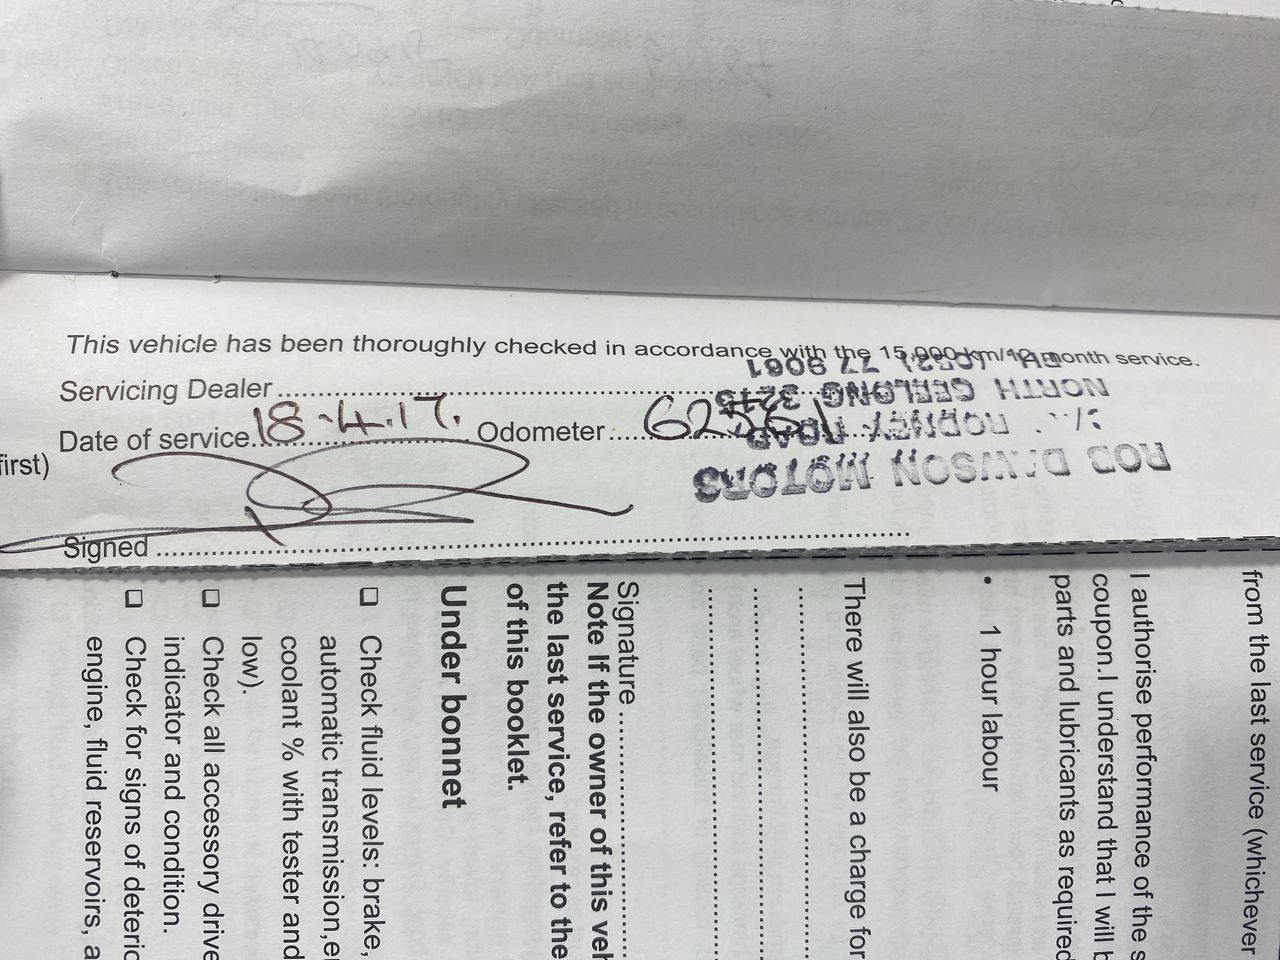 This vehicle has been thoroughly checked in accordance with the 15,000 km/12 month service.
Servicing Dealer
Date of service 18.4.17. Odometer 62561
Signed
ROD DAWSON MOTORS
RODNEY ROAD
NORTH GEELONG 3215
PH. (0352) 77 9061
first)
from the last service (whichever
I authorise performance of the s
coupon. I understand that I will b
parts and lubricants as required
• 1 hour labour
There will also be a charge for
Signature
Note If the owner of this veh
the last service, refer to the
of this booklet.
Under bonnet
☐ Check fluid levels: brake,
automatic transmission,
coolant % with tester and
low).
☐ Check all accessory drive
indicator and condition.
☐ Check for signs of deterio
engine, fluid reservoirs, a